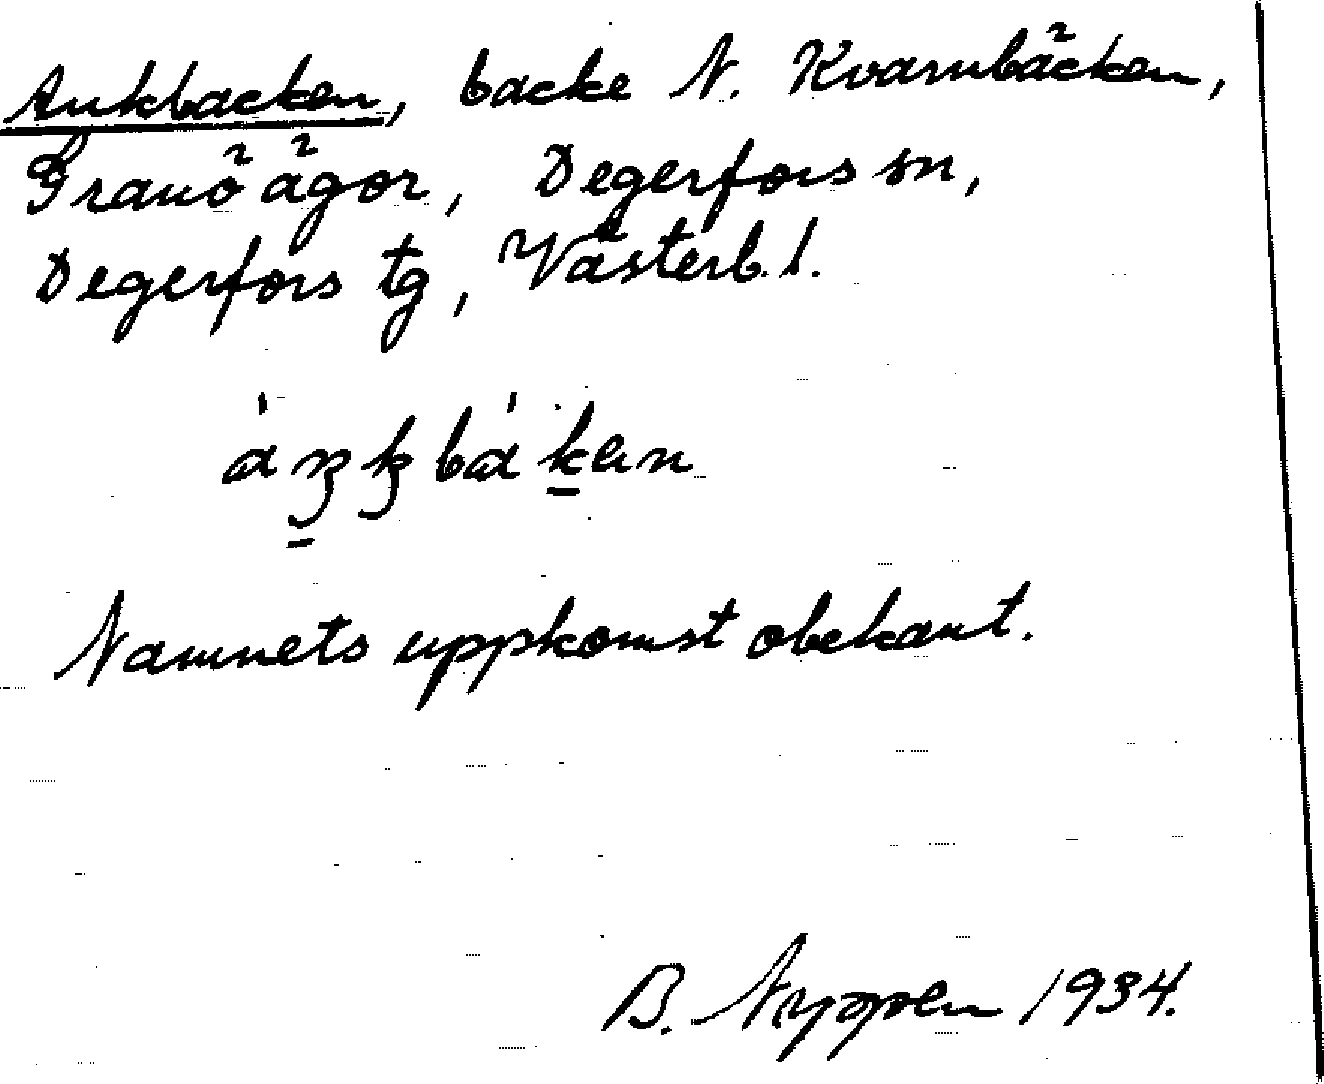 Ankbacken, backe N. Kvarnbäcken,
Granö ägor, Degerfors sn,
Degerfors tg, Västerb. l.
Namnets uppkomst obekant.
B. Nyppen 1934.